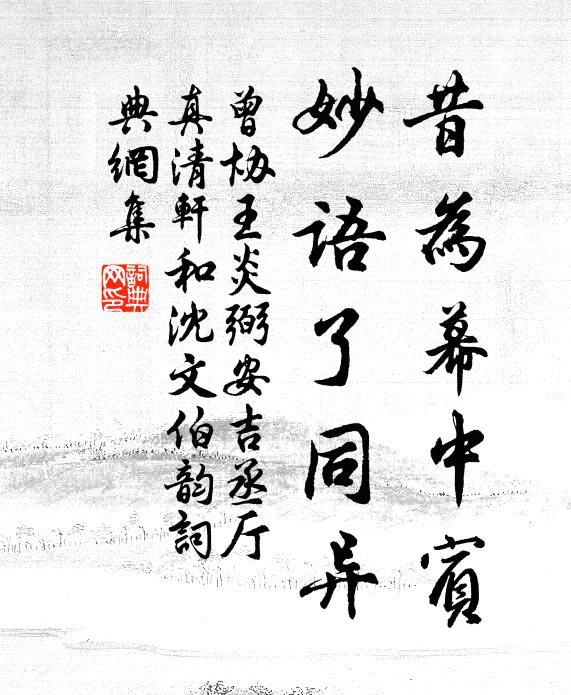 昔為幕中賓
妙語了同异
曾协王炎弼安吉丞厅
真清軒和沈文伯韵詞
典網集
詞典
网印